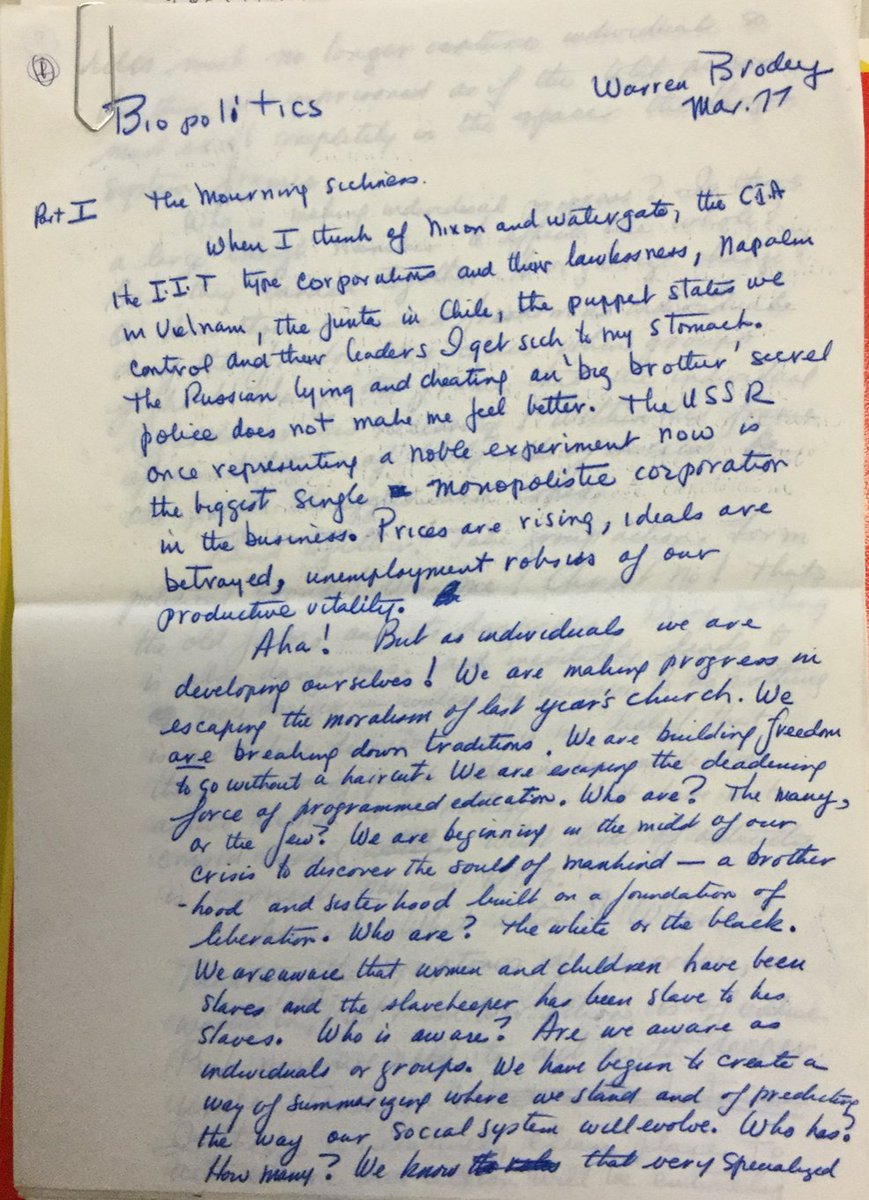 1
Warren Brodey
Mar. 77
Biopolitics
Part I The Mourning Sickness.
When I think of Nixon and Watergate, the CIA
the I.T.T type corporations and their lawlessness, Napalm
in Vietnam, the junta in Chile, the puppet states we
control and their leaders I get sick to my stomach.
The Russian lying and cheating an 'big brother' secret
police does not make me feel better. The USSR
once representing a noble experiment now is
the biggest single monopolistic corporation
in the business. Prices are rising, ideals are
betrayed, unemployment robs us of our
productive vitality.
Aha! But as individuals we are
developing ourselves! We are making progress in
escaping the moralism of last year's church. We
are breaking down traditions. We are building freedom
to go without a haircut. We are escaping the deadening
force of programmed education. Who are? The many,
or the few? We are beginning in the midst of our
crisis to discover the soul of mankind — a brother
-hood and sisterhood built on a foundation of
liberation. Who are? The white or the black.
We are aware that women and children have been
slaves and the slavekeeper has been slave to his
slaves. Who is aware? Are we aware as
individuals or groups. We have begun to create a
way of summarizing where we stand and of predicting
the way our social system will evolve. Who has?
How many? We know that very specialized